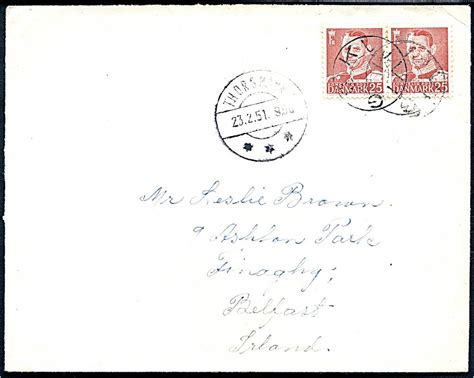 DANMARK 25 DANMARK 25
THORSHAVN
23.2.51. 8
Mr Leslie Brown.
9 Ashton Park
Finaghy,
Belfast
Irland.